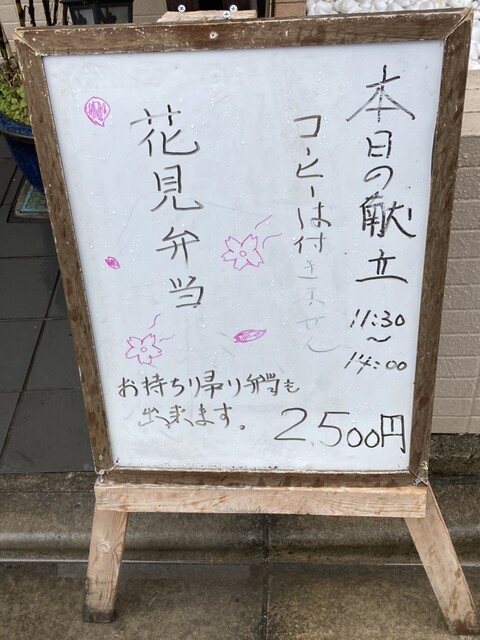 本日の献立
11:30
〜
14:00
コーヒーは付きません
花見弁当
お持ち帰り弁当も
出来ます。
2,500円